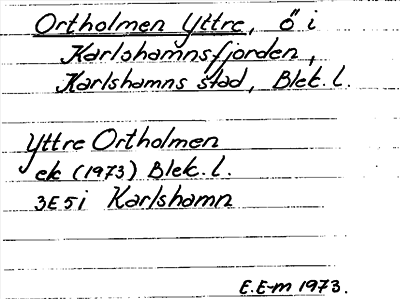 Ortholmen Yttre, ö i
Karlshamnsfjorden,
Karlshamns stad, Blek. l.
Yttre Ortholmen
ek (1973) Blek. l.
3E5i Karlshamn
E.E-m 1973.